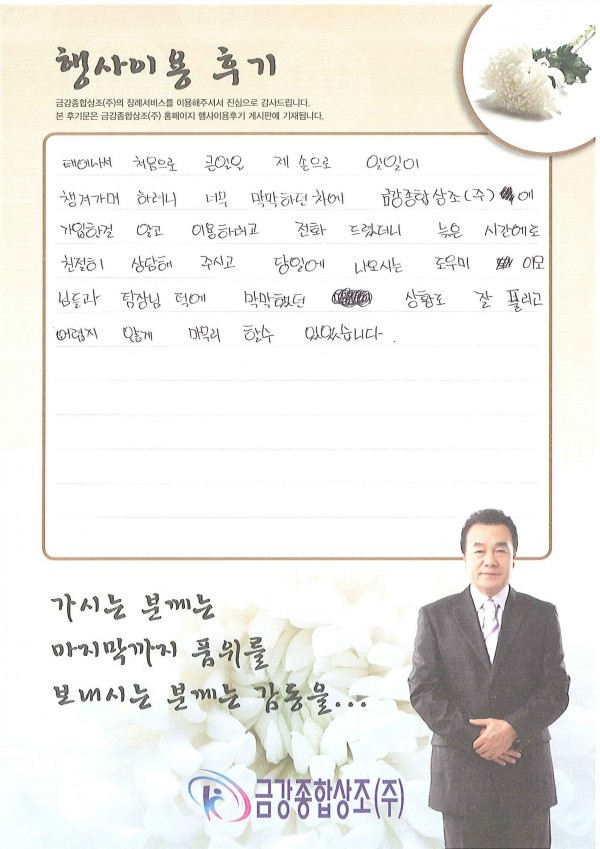 행사이용 후기
금강종합상조(주)의 장례서비스를 이용해주셔서 진심으로 감사드립니다.
본 후기문은 금강종합상조(주) 홈페이지 행사이용후기 게시판에 기재됩니다.
태어나서 처음으로 큰일을 제 손으로 일일이
챙겨가며 하려니 너무 막막하던 차에 금강종합상조(주) 에
가입한걸 알고 이용하려고 전화 드렸더니 늦은 시간에도
친절히 상담해 주시고 당일에 나오시는 도우미 이모
님들과 팀장님 덕에 막막했던 상황도 잘 풀리고
어렵지 않게 마무리 할수 있었습니다.
가시는 분께는
마지막까지 품위를
보내시는 분께는 감동을...
금강종합상조(주)